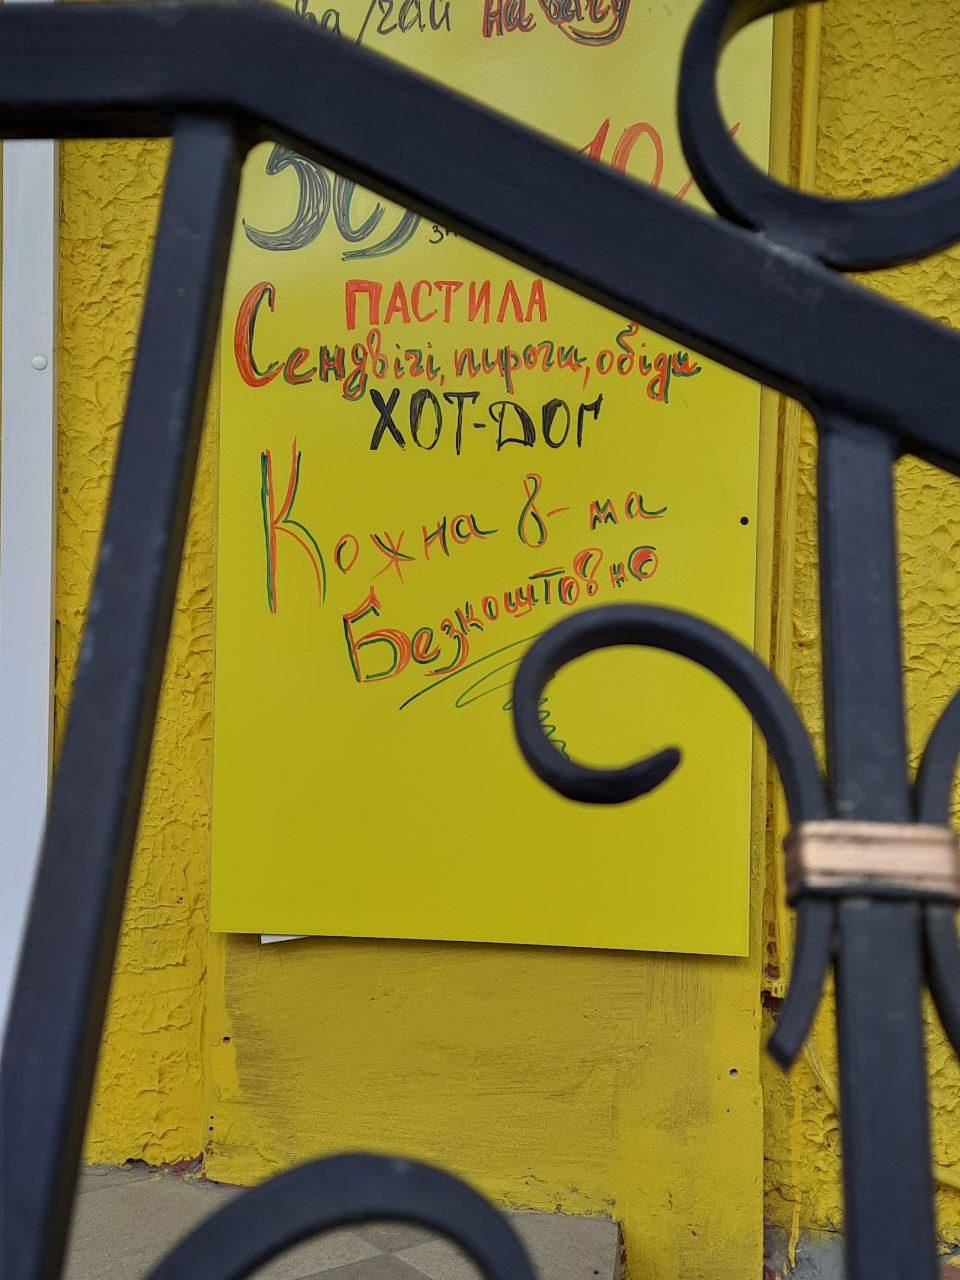 чай на вагу
ПАСТИЛА
Сендвічі, пироги, обіди
ХОТ-ДОГ
Кожна 8-ма
Безкоштовно